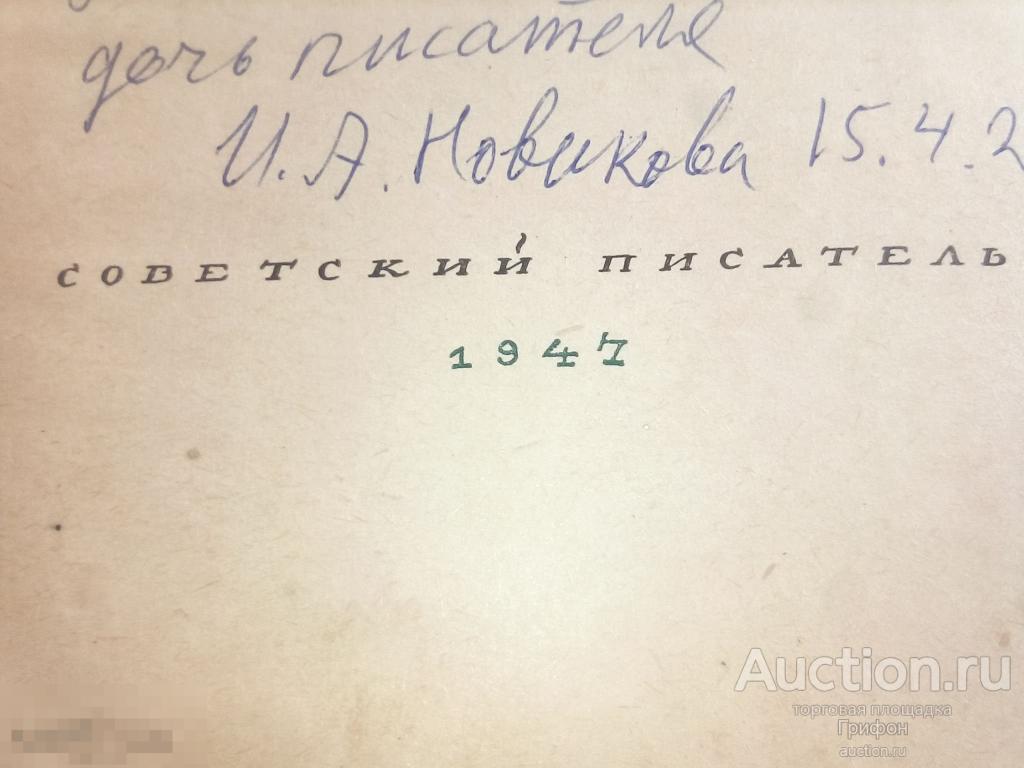 дочь писателя
И. А. Новикова 15.4.2
СОВЕТСКИЙ ПИСАТЕЛЬ
1947
Auction.ru
торговая площадка
Грифон
auction.ru